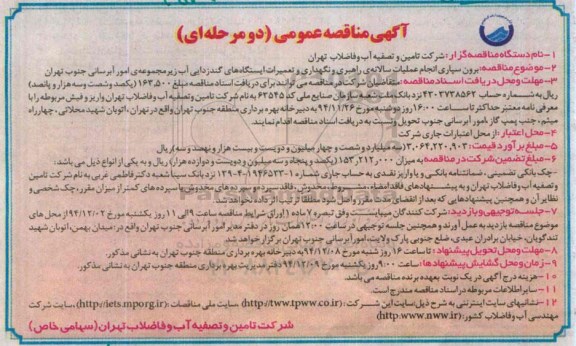 آگهی مناقصه عمومی (دو مرحله‌ای)
۱- نام دستگاه مناقصه گزار: شرکت تامین و تصفیه آب و فاضلاب تهران
۲- موضوع مناقصه: برون سپاری انجام عملیات سالانه‌ی راهبری و نگهداری و تعمیرات ایستگاه‌های گندزدایی آب زیرمجموعه‌ی امور آبرسانی جنوب تهران
۳- مهلت و محل دریافت اسناد مناقصه: متقاضیان شرکت در مناقصه می توانند برای دریافت اسناد مناقصه مبلغ ۱۶۳,۵۰۰ (یکصد و شصت و سه هزار و پانصد)
ریال به شماره حساب ۴۳۰۳۷۳۸۵۶۲ نزد بانک ملت شعبه سازمان صنایع ملی کد ۶۳۵۴۵ به نام شرکت تامین و تصفیه آب و فاضلاب تهران واریز و فیش مربوطه را با
معرفی نامه معتبر حداکثر تا ساعت ۱۶:۰۰ روز دوشنبه مورخ ۹۴/۱۱/۲۶ به دبیرخانه بهره برداری منطقه جنوب تهران واقع در تهران، اتوبان شهید محلاتی، چهارراه
میثم، جنب پمپ گاز، امور آبرسانی جنوب تحویل و نسبت به دریافت اسناد مناقصه اقدام نمایند.
۴- محل اعتبار: از محل اعتبارات جاری شرکت
۵- مبلغ برآورد قیمت: ۳,۰۶۴,۲۲۰,۹۰۳ (سه میلیارد و شصت و چهار میلیون و دویست و بیست هزار و نهصد و سه) ریال
۶- مبلغ تضمین شرکت در مناقصه به میزان ۱۵۳,۲۱۲,۰۰۰ (یکصد و پنجاه و سه میلیون و دویست و دوازده هزار) ریال و به یکی از انواع ذیل می باشد:
-چک بانکی تضمینی، ضمانتنامه بانکی و یا واریز نقدی به حساب جاری شماره ۱-۱۹۴۶۵۳۳-۴-۱۳۹ نزد بانک سینا شعبه دکتر فاطمی غربی به نام شرکت تامین
و تصفیه آب و فاضلاب تهران و به پیشنهادهای فاقد امضاء، مشروط، مخدوش، فاقد سپرده و سپرده‌های مخدوش یا سپرده‌های کمتر از میزان مقرر، چک شخصی و
نظایر آن و همچنین پیشنهادهایی که بعد از انقضای مدت مقرر واصل شود مطلقا ترتیب اثر داده نخواهد شد.
۷- جلسه توجیهی و بازدید: شرکت کنندگان میبایست وفق تبصره ۷ ماده ۱ اوراق شرایط مناقصه ساعت ۹ الی ۱۱ روز یکشنبه مورخ ۹۴/۱۲/۰۲ از محل های
موضوع مناقصه بازدید به عمل آورند و همچنین جلسه توجیهی در ساعت ۱۲:۰۰ همان روز در دفتر مدیر امور آبرسانی جنوب تهران واقع در: میدان بهمن، اتوبان شهید
تندگویان، خیابان برادران عبدی، ضلع جنوبی پارک ولایت، امور آبرسانی جنوب تهران برگزار خواهد شد.
۸- مهلت و محل تحویل پیشنهاد: تا ساعت ۱۶ روز شنبه مورخ ۹۴/۱۲/۰۸ به دبیرخانه بهره برداری منطقه جنوب تهران به نشانی مذکور.
۹- زمان و محل گشایش پیشنهادها: ساعت ۹:۰۰ روز یکشنبه مورخ ۹۴/۱۲/۰۹ دفتر سرپرست بهره برداری منطقه جنوب تهران به نشانی مذکور.
۱۰- هزینه درج آگهی در یک نوبت بعهده برنده مناقصه می‌باشد.
۱۱- سایر اطلاعات مربوطه در اسناد مناقصه مندرج است.
۱۲- نشانیهای سایت اینترنتی به شرح ذیل: سایت این شرکت: (http://tww.tpww.co.ir)، سایت ملی مناقصات: (http://iets.mporg.ir)، سایت شرکت
مهندسی آب و فاضلاب کشور: (http.www.nww.ir)
شرکت تامین و تصفیه آب و فاضلاب تهران (سهامی خاص)